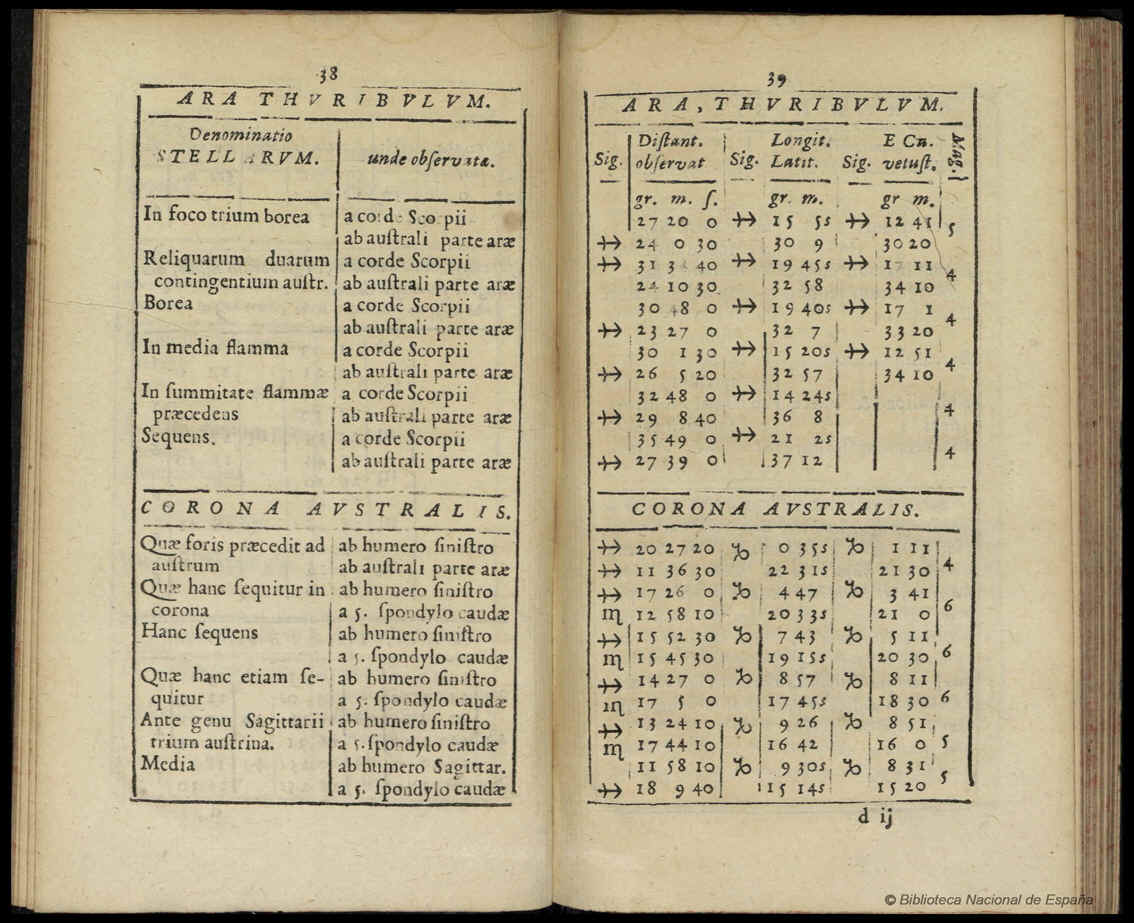 38
ARA THVRIBVLVM.
Denominatio
STELLARVM.
unde observatæ.
In foco trium borea a corde Scorpii
ab australi parte aræ
Reliquarum duarum a corde Scorpii
contingentium austr. ab australi parte aræ
Borea a corde Scorpii
ab australi parte aræ
In media flamma a corde Scorpii
ab australi parte aræ
In summitate flammæ a corde Scorpii
præcedens ab australi parte aræ
Sequens. a corde Scorpii
ab australi parte aræ
CORONA AVSTRALIS.
Quæ foris præcedit ad ab humero sinistro
austrum ab australi parte aræ
Quæ hanc sequitur in ab humero sinistro
corona a 5. spondylo caudæ
Hanc sequens ab humero sinistro
a 5. spondylo caudæ
Quæ hanc etiam se- ab humero sinistro
quitur a 5. spondylo caudæ
Ante genu Sagittarii ab humero sinistro
trium austrina. a 5. spondylo caudæ
Media ab humero Sagittar.
a 5. spondylo caudæ
39
ARA, THVRIBVLVM.
Distant. Longit. E Cn. Mag.
Sig. observat Sig. Latit. Sig. vetust.
gr. m. s. gr. m. gr m.
27 20 0 ♐ 15 5s ♐ 12 41 5
♐ 24 0 30 30 9 30 20
♐ 31 3 40 ♐ 19 45s ♐ 11 4
24 10 30 32 58 34 10
30 48 0 ♐ 19 40s ♐ 17 1 4
♐ 23 27 0 32 7 33 20
30 1 30 ♐ 15 20s ♐ 12 51 4
♐ 26 5 20 32 57 34 10
32 48 0 ♐ 14 24s 4
♐ 29 8 40 36 8
35 49 0 ♐ 21 2s 4
♐ 27 39 0 37 12
CORONA AVSTRALIS.
♐ 20 27 20 ♑ 0 35s ♑ 1 11 4
♐ 11 36 30 22 31s 21 30
♐ 17 26 0 ♑ 4 47 ♑ 3 41 6
♏ 12 58 10 20 33s 21 0
♐ 15 52 30 ♑ 7 43 ♑ 5 11 6
♏ 15 45 30 19 15s 20 30
♐ 14 27 0 ♑ 8 57 ♑ 8 11 6
♏ 17 5 0 17 45s 18 30
♐ 13 24 10 ♑ 9 26 ♑ 8 51 5
♏ 17 44 10 16 42 16 0
11 58 10 ♑ 9 30s ♑ 8 31 5
♐ 18 9 40 15 14s 15 20
d ij
© Biblioteca Nacional de España